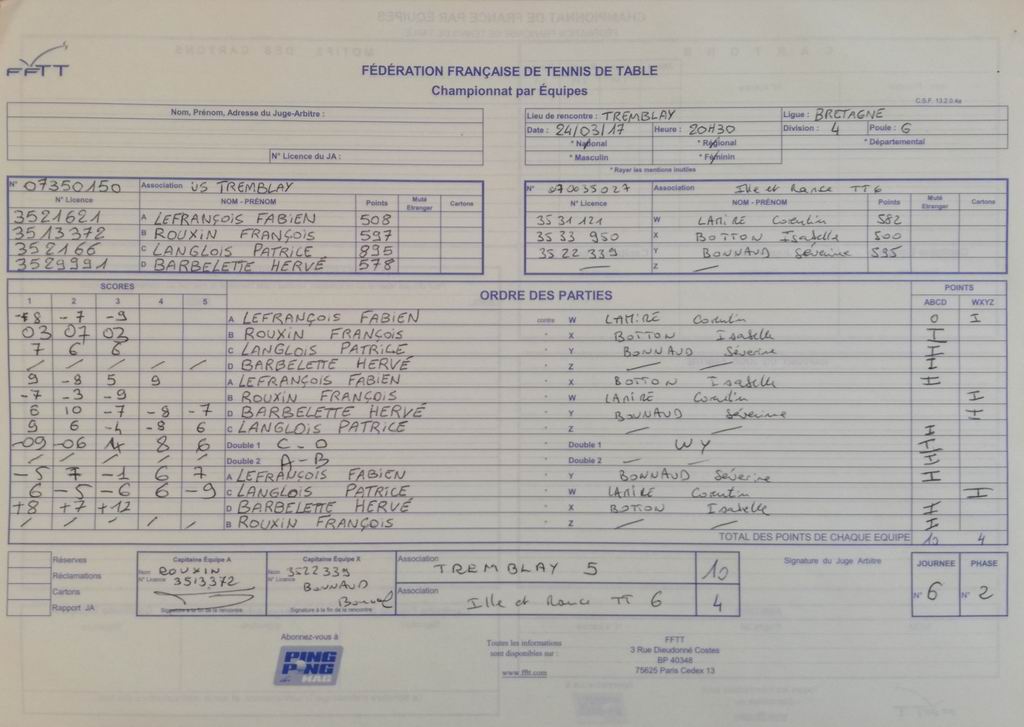 FFTT
FÉDÉRATION FRANÇAISE DE TENNIS DE TABLE
Championnat par Équipes
C.S.F. 13.2.0.4a
Nom, Prénom, Adresse du Juge-Arbitre :
N° Licence du JA :
Lieu de rencontre : TREMBLAY Ligue : BRETAGNE
Date : 24/03/17 Heure : 20H30 Division : 4 Poule : G
* National * Régional * Départemental
* Masculin * Féminin
* Rayer les mentions inutiles
N° 07350150 Association US TREMBLAY
N° Licence NOM - PRÉNOM Points Muté Etranger Cartons
3521621 A LEFRANÇOIS FABIEN 508
3513372 B ROUXIN FRANÇOIS 597
352166 C LANGLOIS PATRICE 895
3529991 D BARBELETTE HERVÉ 578
N° 070035027 Association Ille et Rance TT 6
N° Licence NOM - PRÉNOM Points Muté Etranger Cartons
35 31 121 W LAMIRE Corentin 582
35 33 950 X BOTTON Isabelle 500
35 22 339 Y BONNAUD Séverine 595
— Z —
SCORES ORDRE DES PARTIES POINTS
1 2 3 4 5 ABCD WXYZ
-8 -7 -9 A LEFRANÇOIS FABIEN contre W LAMIRE Corentin 0 I
03 07 02 B ROUXIN FRANÇOIS " X BOTTON Isabelle I
7 6 6 C LANGLOIS PATRICE " Y BONNAUD Séverine I
/ / / / / D BARBELETTE HERVÉ " Z — — I
9 -8 5 9 A LEFRANÇOIS FABIEN " X BOTTON Isabelle I
-7 -3 -9 B ROUXIN FRANÇOIS " W LAMIRE Corentin I
6 10 -7 -8 -7 D BARBELETTE HERVÉ " Y BONNAUD Séverine I
9 6 -4 -8 6 C LANGLOIS PATRICE " Z — — I
-09 -06 8 6 Double 1 C-D " Double 1 WY I
/ / / / / Double 2 A-B " Double 2 — — I
-5 7 -1 6 7 A LEFRANÇOIS FABIEN " Y BONNAUD Séverine I
6 -5 -6 6 -9 C LANGLOIS PATRICE " W LAMIRE Corentin I
+8 +7 +12 D BARBELETTE HERVÉ " X BOTTON Isabelle I
/ / / / / B ROUXIN FRANÇOIS " Z — — I
TOTAL DES POINTS DE CHAQUE EQUIPE 10 4
Réserves
Réclamations
Cartons
Rapport JA
Capitaine Équipe A
Nom ROUXIN
N° Licence 3513372
Signature à la fin de la rencontre
Capitaine Équipe X
Nom 3522339
N° Licence BONNAUD
Signature à la fin de la rencontre
Association TREMBLAY 5 10
Association Ille et Rance TT 6 4
Signature du Juge Arbitre
JOURNEE PHASE
N° 6 N° 2
Abonnez-vous à
PING PONG MAG
Toutes les informations
sont disponibles sur :
www.fftt.com
FFTT
3 Rue Dieudonné Costes
BP 40348
75625 Paris Cedex 13